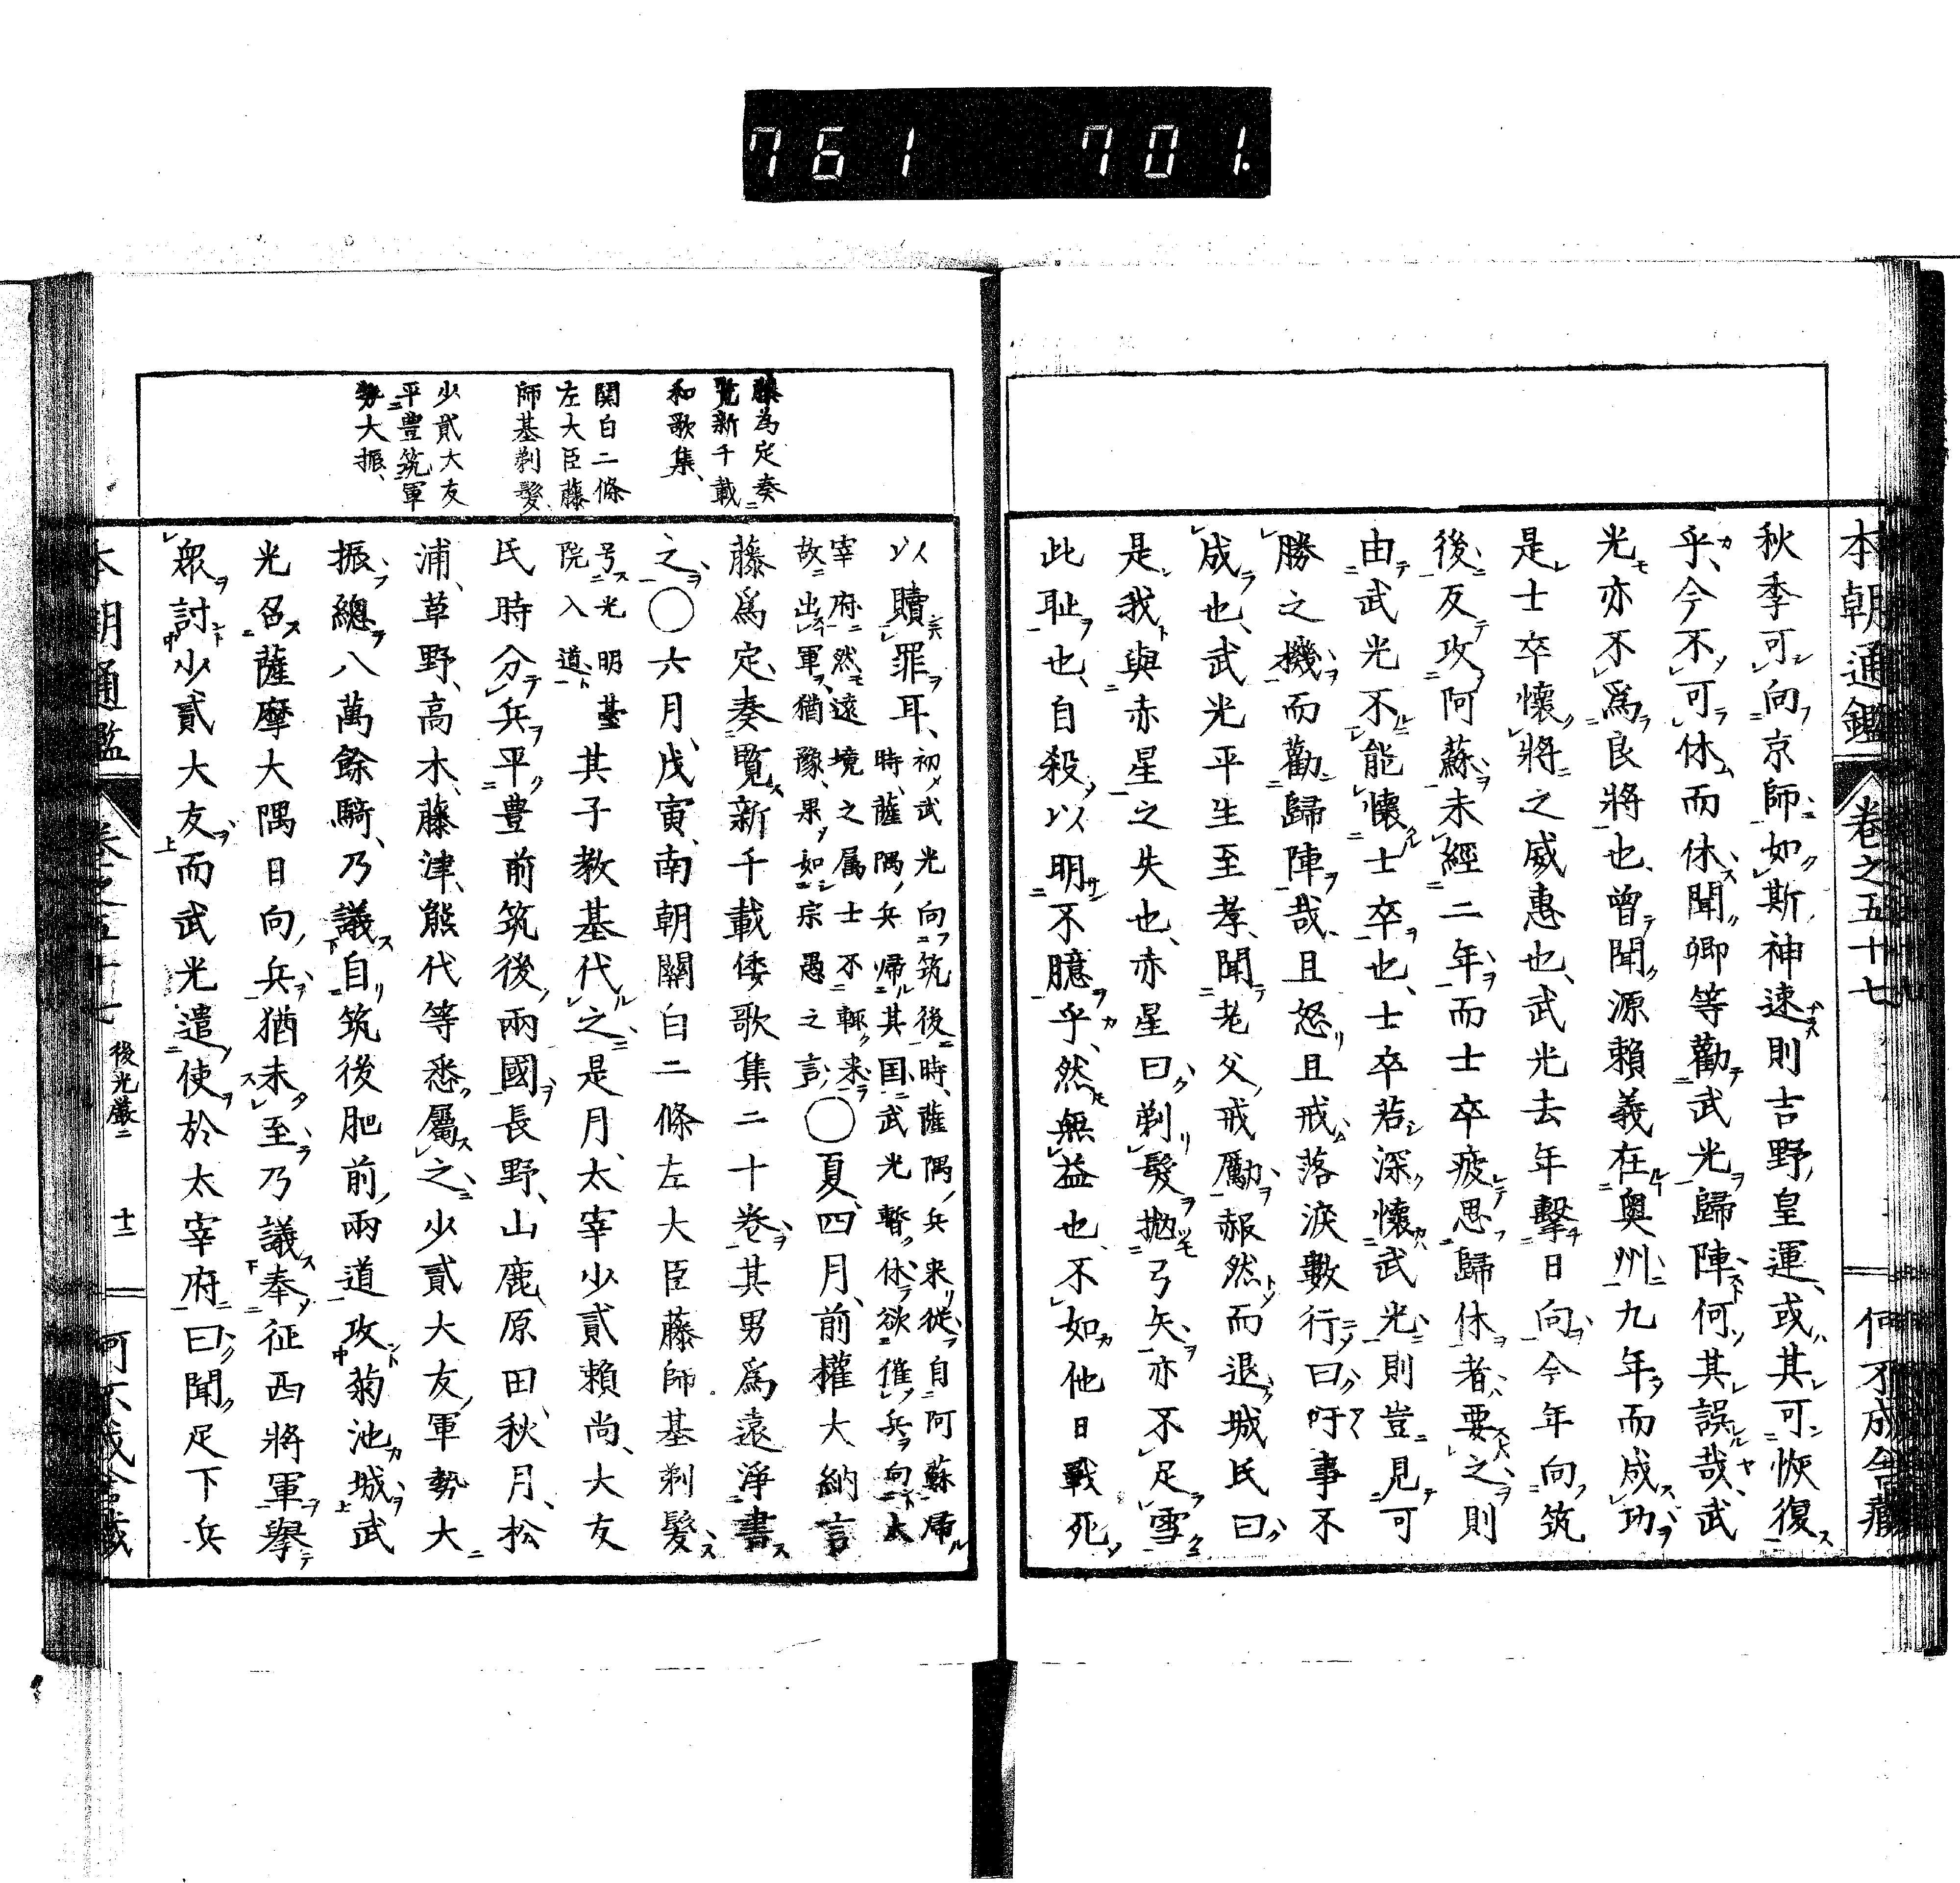 761 701.
本朝通鑑 卷之五十七 何不成舎藏
秋季可向京師如斯神速則吉野皇運或其可恢復
乎今不可休而休聞卿等勸武光歸陣何其誤哉武
光亦不爲良將也曾聞源賴義在奥州九年而成功
是士卒懷將之威惠也武光去年撃日向今年向筑
後反攻阿蘇未經二年而士卒疲思歸休者要之則
由武光不能懷士卒也士卒若深懷武光則豈見可
勝之機而勸歸陣哉且怒且戒落淚數行曰吁事不
成也武光平生至孝聞老父戒勵赧然而退城氏曰
是我與赤星之失也赤星曰剃髮抛弓矢亦不足雪
此耻也自殺以明不臆乎然無益也不如他日戰死
以贖罪耳初武光向筑後時薩隅兵来從自阿蘇帰
時薩隅兵帰其国武光暫休欲催兵向太
宰府然遠境之属士不輙来
故出軍猶豫果如宗愚之言〇夏四月前權大納言
藤爲定奏覧新千載倭歌集二十卷其男爲遠淨書
之〇六月戊寅南朝關白二條左大臣藤師基剃髮
号光明基
院入道其子教基代之是月太宰少貳賴尚大友
氏時分兵平豊前筑後兩國長野山鹿原田秋月松
浦草野高木藤津熊代等悉屬之少貳大友軍勢大
振總八萬餘騎乃議自筑後肥前兩道攻菊池城武
光召薩摩大隅日向兵猶未至乃議奉征西將軍擧
衆討少貳大友而武光遣使於太宰府曰聞足下兵
爲定奏
覧新千載
和歌集
関白二條
左大臣藤
師基剃髮
少貳大友
平豊筑軍
勢大振
本朝通鑑 卷之五十七 後光嚴二 十二 何不成舎藏